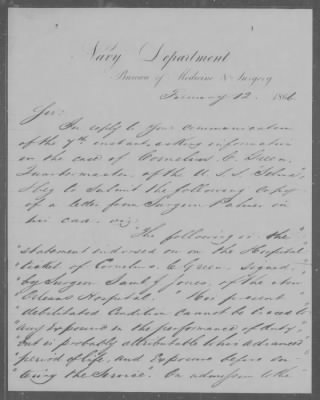 Navy Department
Bureau of Medicine & Surgery
February 12. 1866.
Sir:
In reply to your communication
of the 7th instant, asking information
in the case of Cornelius C. Green,
Quartermaster of the U.S.S.
I beg to submit the following copy
of a letter from Surgeon Palmer in
his case. viz:
"The following is the
"statement endorsed on on the Hospital
"ticket of Cornelius C Green, signed
"by Surgeon Saml J Jones, of the New
"Orleans Hospital. "His present
"debilitated condition cannot be traced to
"any exposure in the performance of duty,
"but is probably attributable to his advanced
"period of life, and exposure before en-
"tering the Service". On admission to the